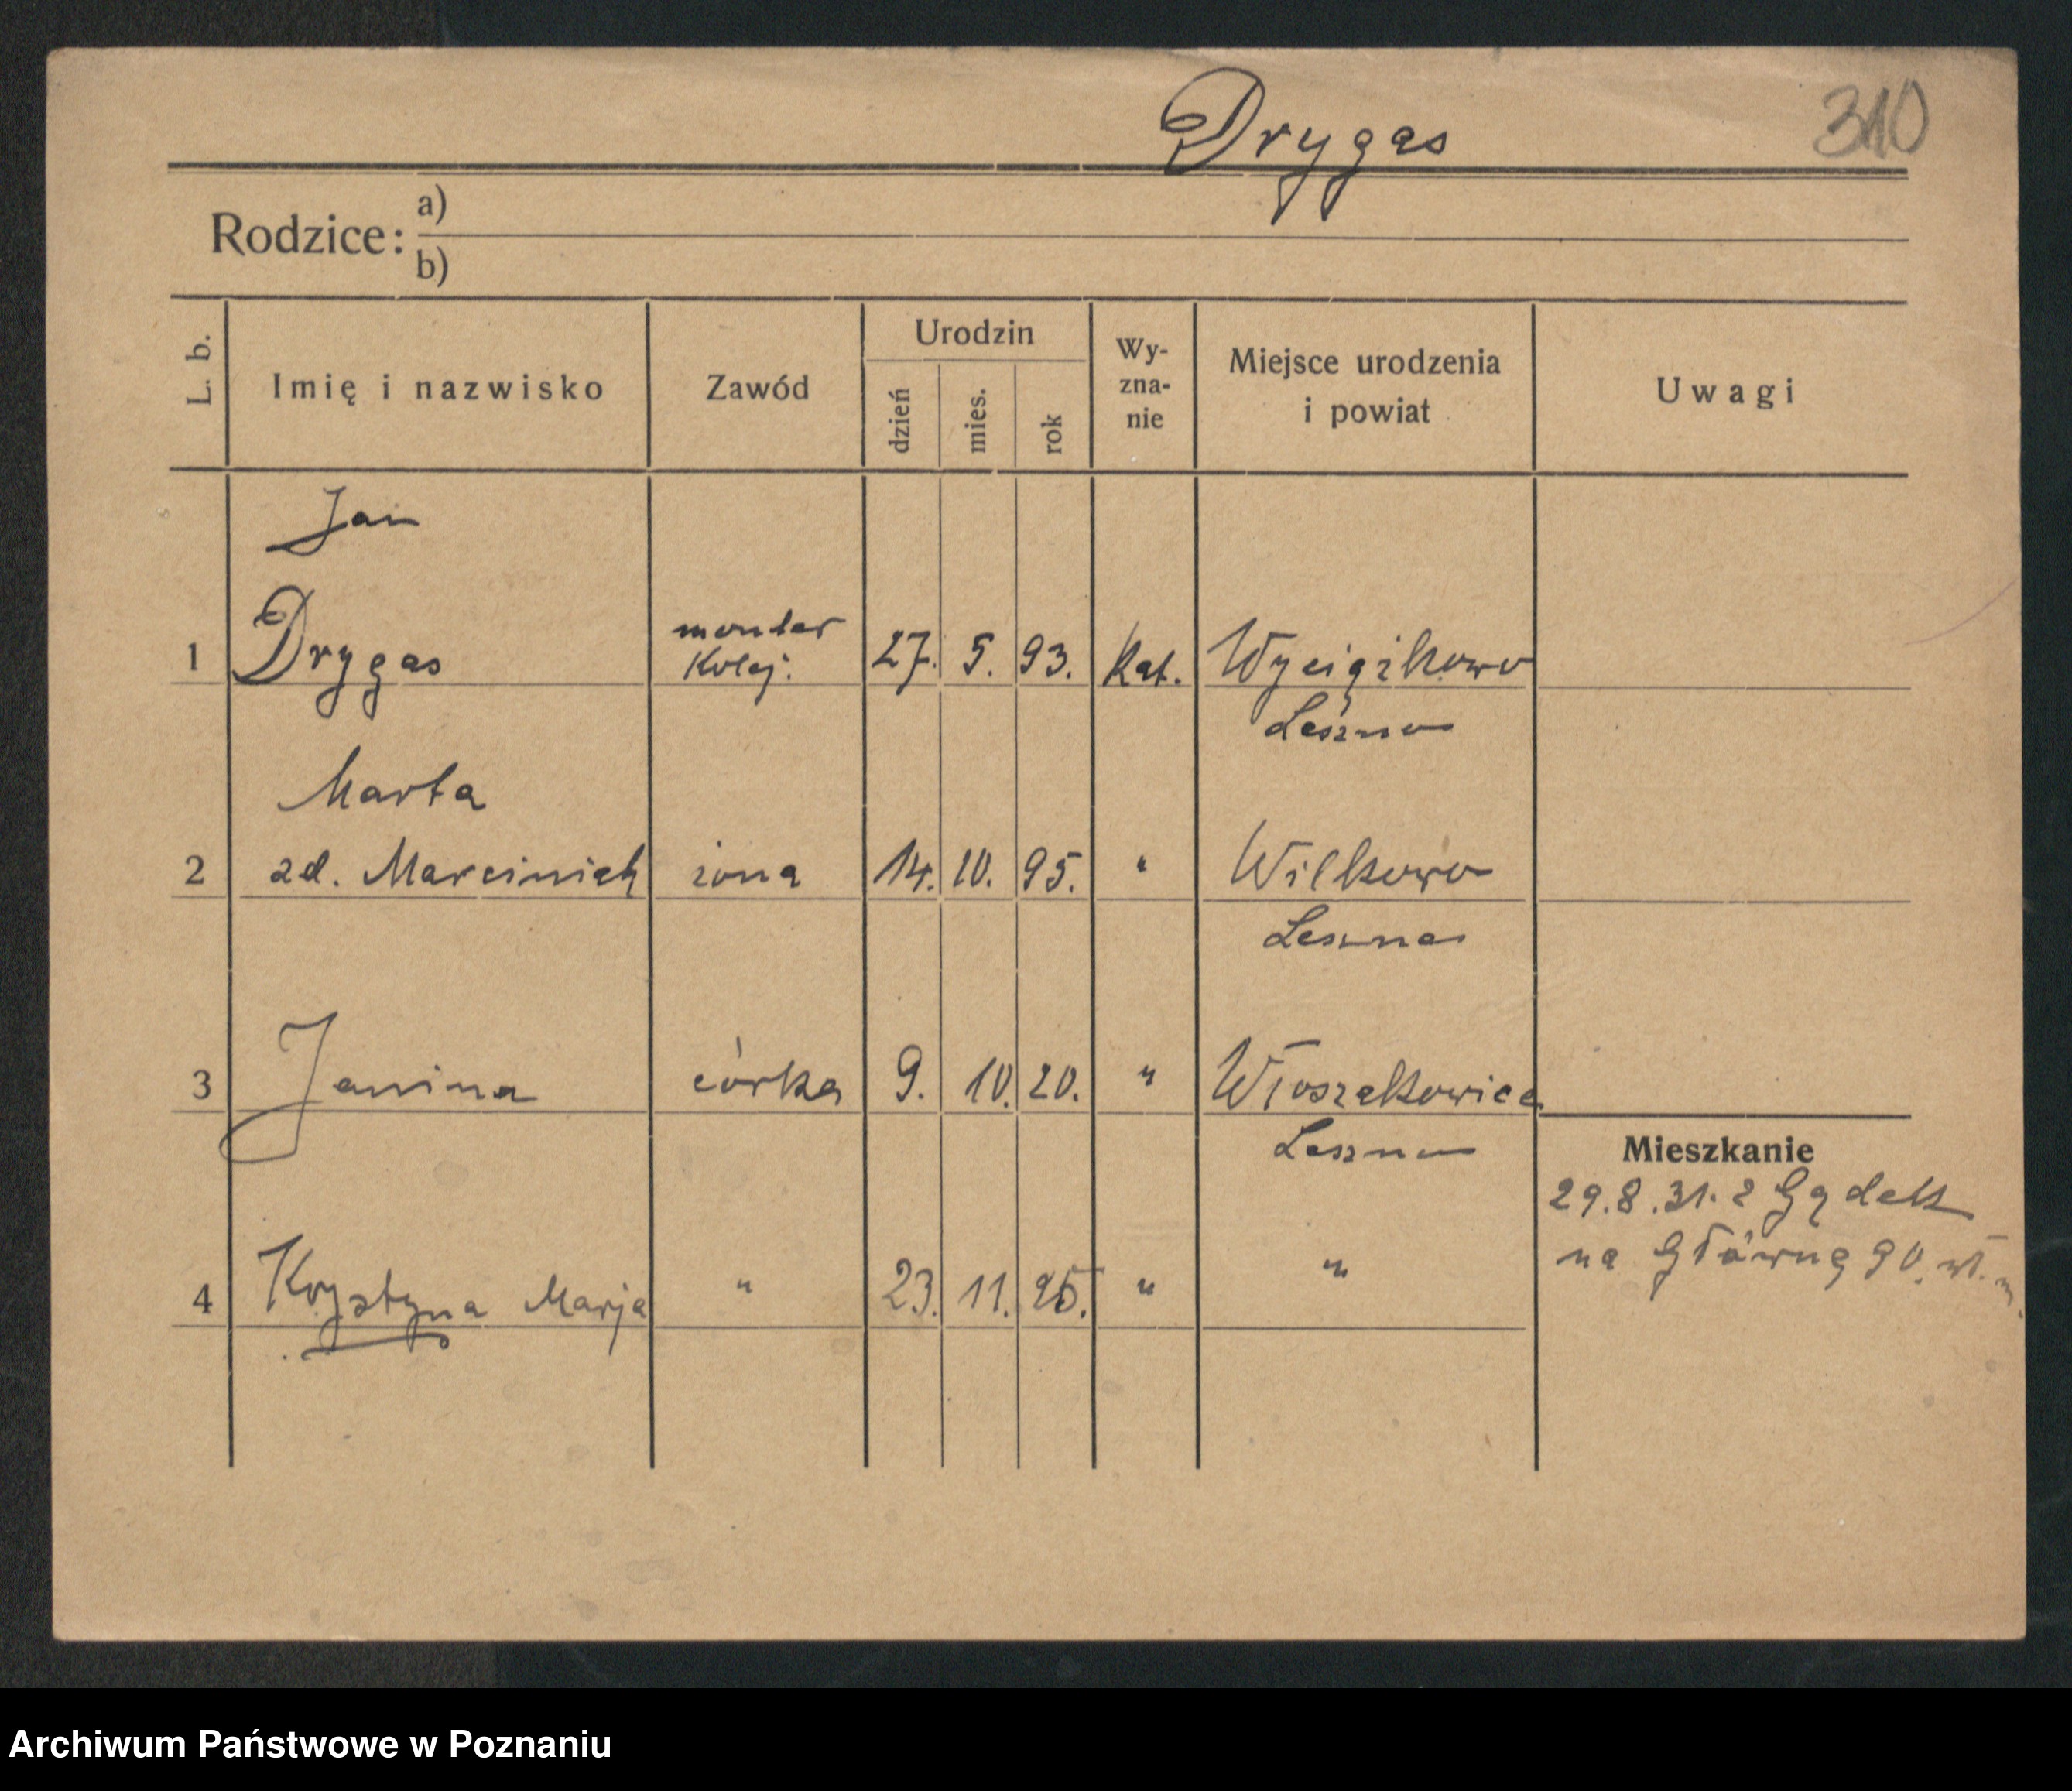 Drygas 310
Rodzice: a)
b)
L. b. Imię i nazwisko Zawód Urodzin dzień mies. rok Wy-zna-nie Miejsce urodzenia i powiat Uwagi
Jan
1 Drygas monter Kolej. 27. 5. 93. Kat. Wyciążkowo
Leszno
Marta
2 zd. Marciniak żona 14. 10. 95. " Wilkowo
Leszno
3 Janina córka 9. 10. 20. " Włoszakowice
Leszno
Mieszkanie
29.8.31. z Gądek
na Główną 90. wł. m.
4 Krystyna Marja " 23. 11. 25. " "
Archiwum Państwowe w Poznaniu